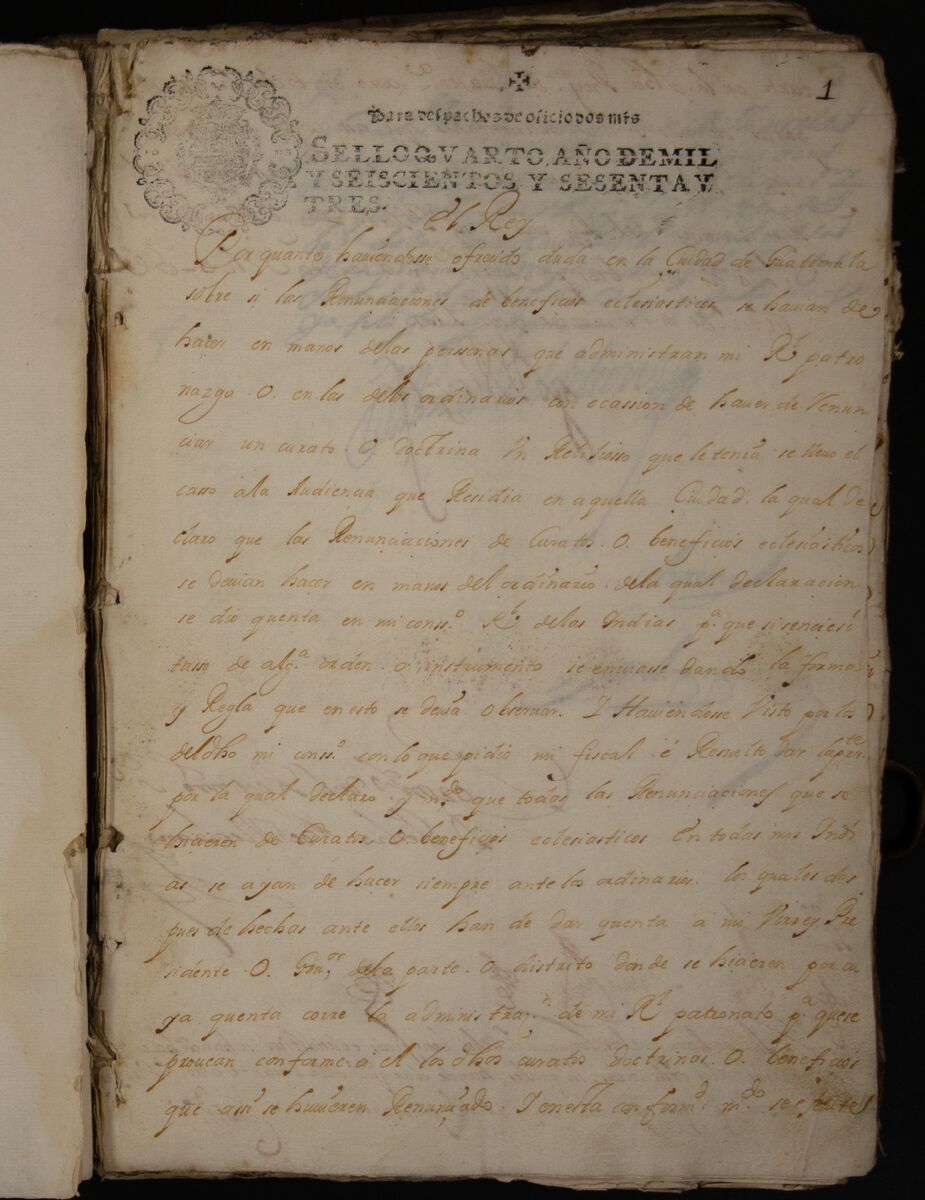 1
Para despachos de oficio dos mrs
SELLO QVARTO, AÑO DE MIL
Y SEISCIENTOS, Y SESENTA Y
TRES.
El Rey
Por quanto haviendosse ofrecido duda en la Ciudad de Guatemala
sobre si las Renunciaciones de beneficios eclesiasticos se havian de
hacer en manos delas personas que administran mi Rl patro
nazgo. O. en las delos ordinarios con ocassion de haver de renun
ciar un curato. O. doctrina Un Relihiosso que le tenia se llevo el
casso ala Audiencia que Residia en aquella Ciudad. la qual de
claro que las Renunciaciones de Curatos. O. beneficios eclesiasticos
se devian hacer en manos del ordinario. dela qual declaracion
se dio quenta en mi consso. Rl. delas Indias pa. que si se neçesi
tasse de alga. orden. o instrumento se enviasse dando la forma
y Regla que en esto se devia observar. I Haviendosse Visto por los
del dho mi consso. con lo que pidio mi fiscal é Resuelto dar la pres.te
por la qual declaro. y mdo. que todas las Renunciaciones que se
hicieren de Curatos. O. beneficios eclesiasticos En todas mis Indi
as se ayan de hacer siempre ante los ordinarios. los quales des
pues de hechas ante ellos han de dar quenta a mi Virrey Pre
sidente. O. Gouor. dela parte. o distrito donde se hicieren por cu
ya quenta corre la administran. de mi Rl patronato pa. que se
provean conforme a él los dhos curatos doctrinas. O. beneficios
que assi se huvieren Renunçiado. I en esta conformd mdo. se execute